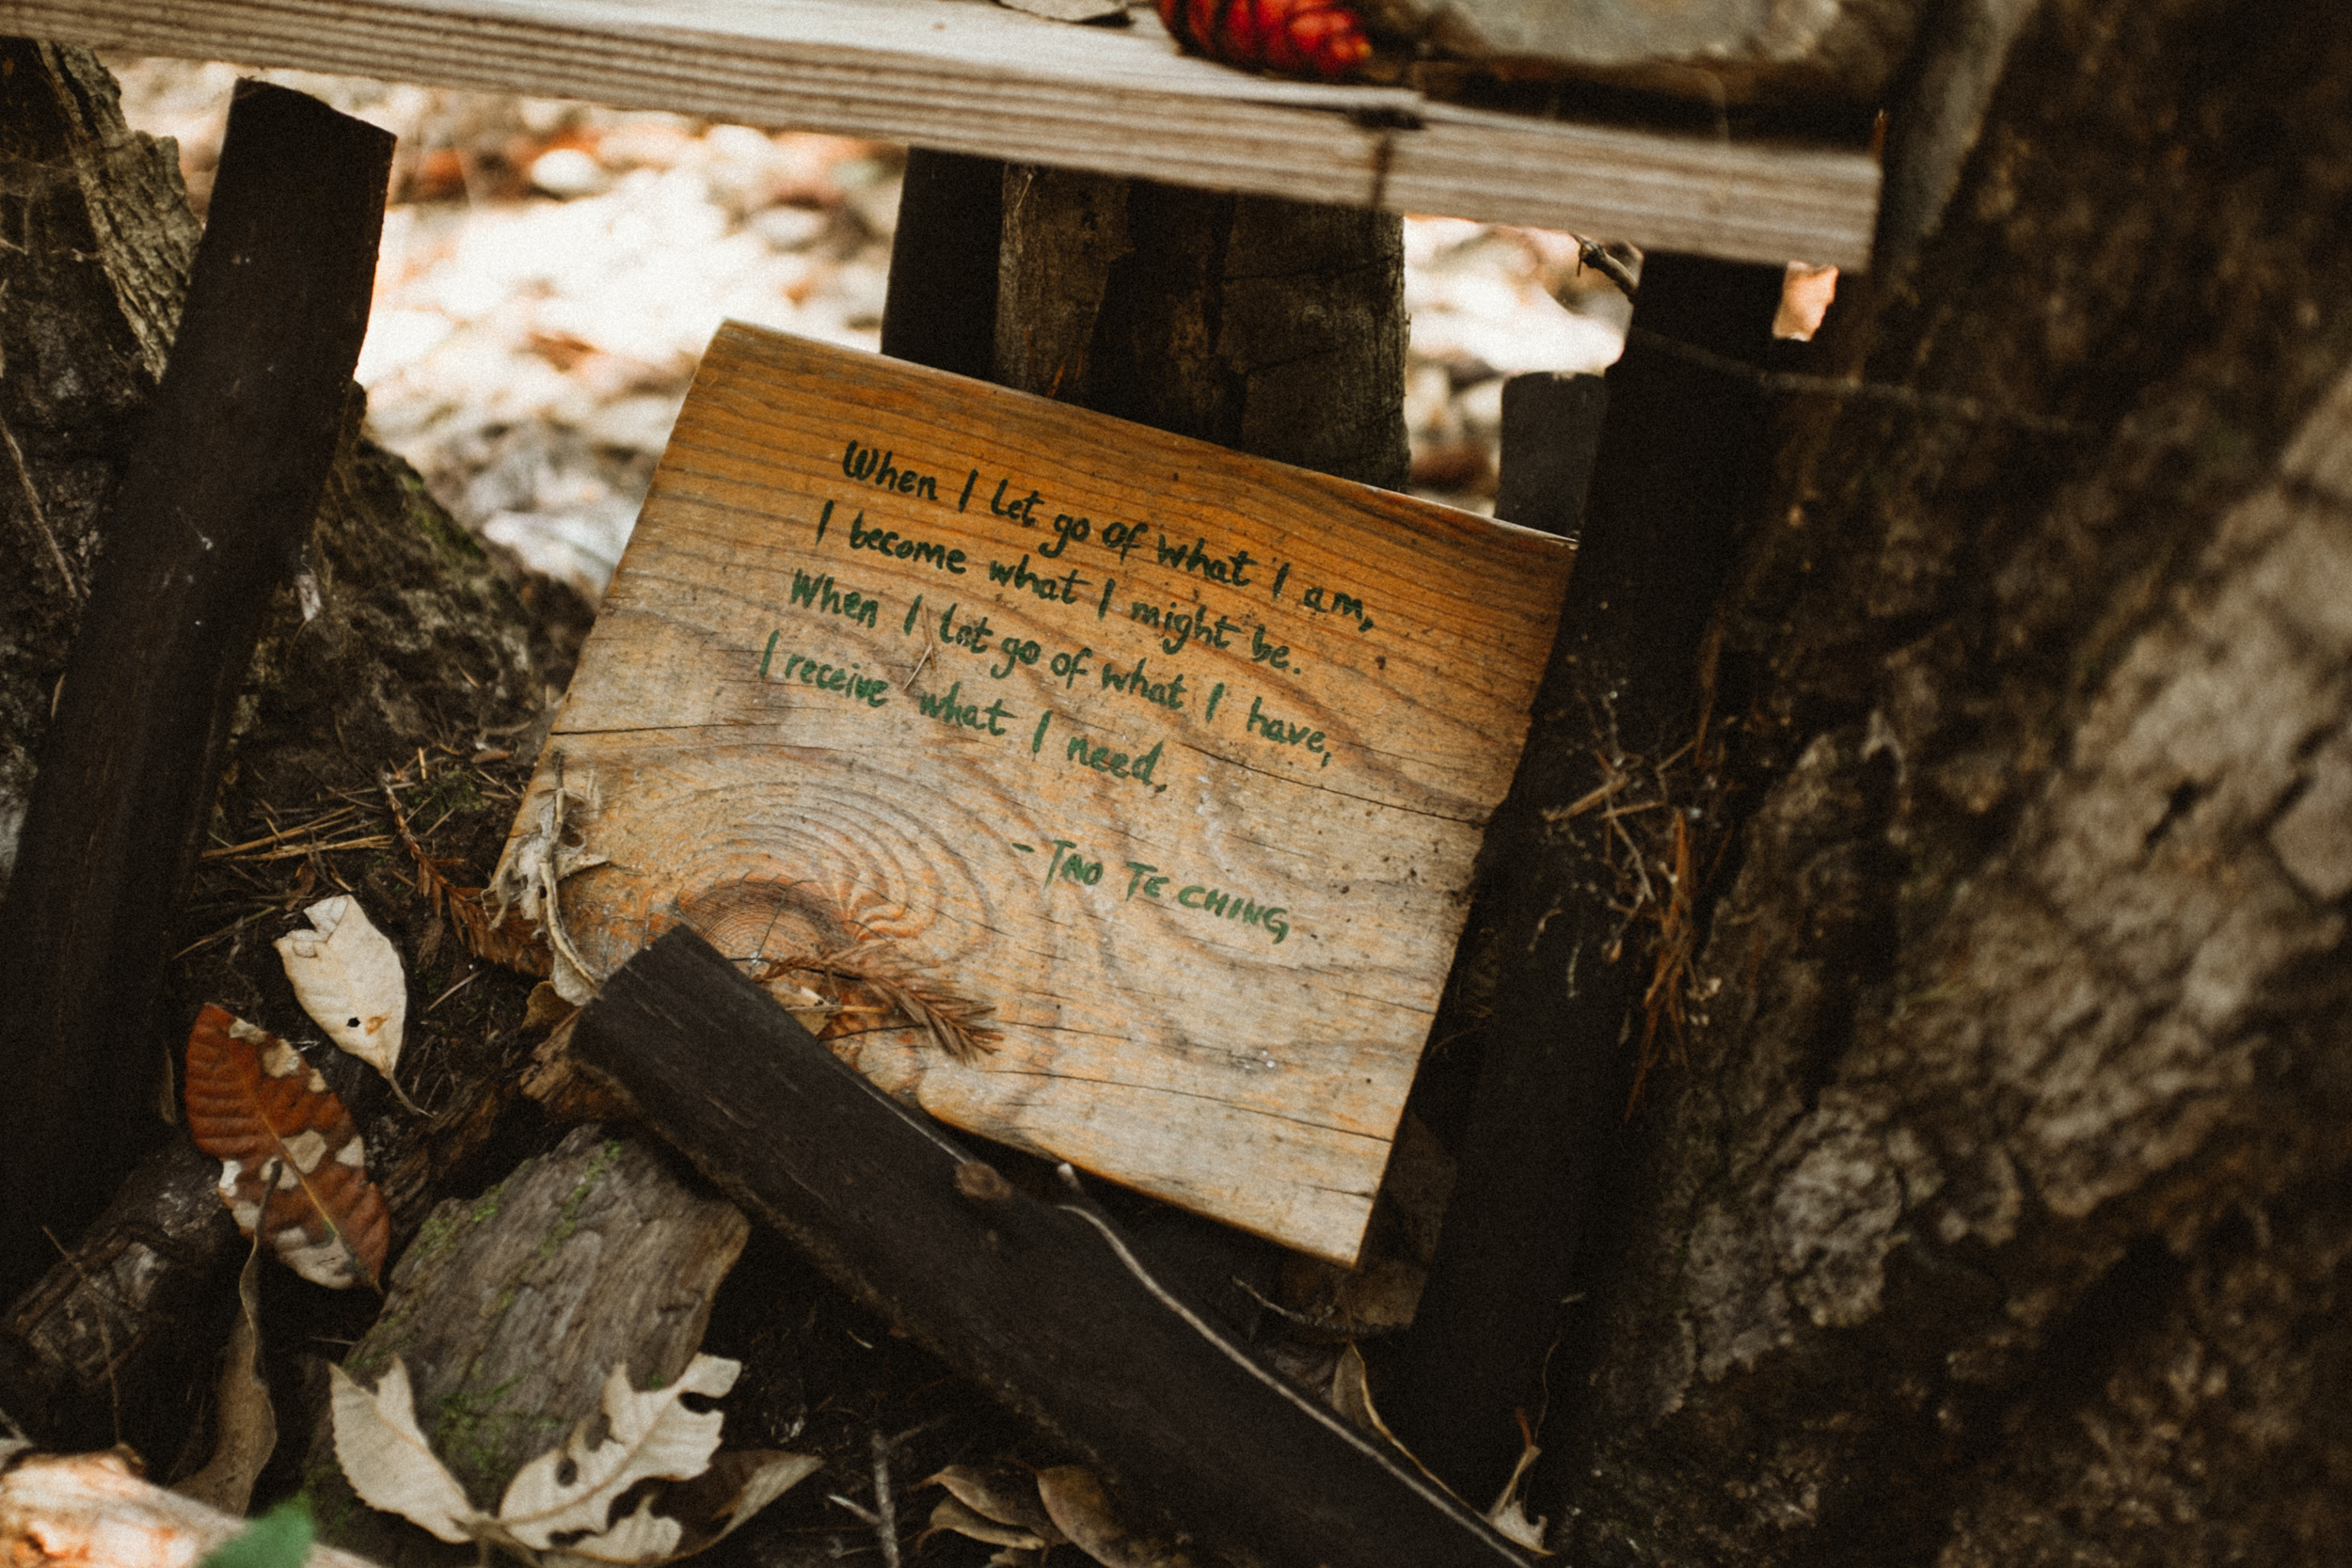 When I let go of what I am,
I become what I might be.
When I let go of what I have,
I receive what I need.
- TAO TE CHING